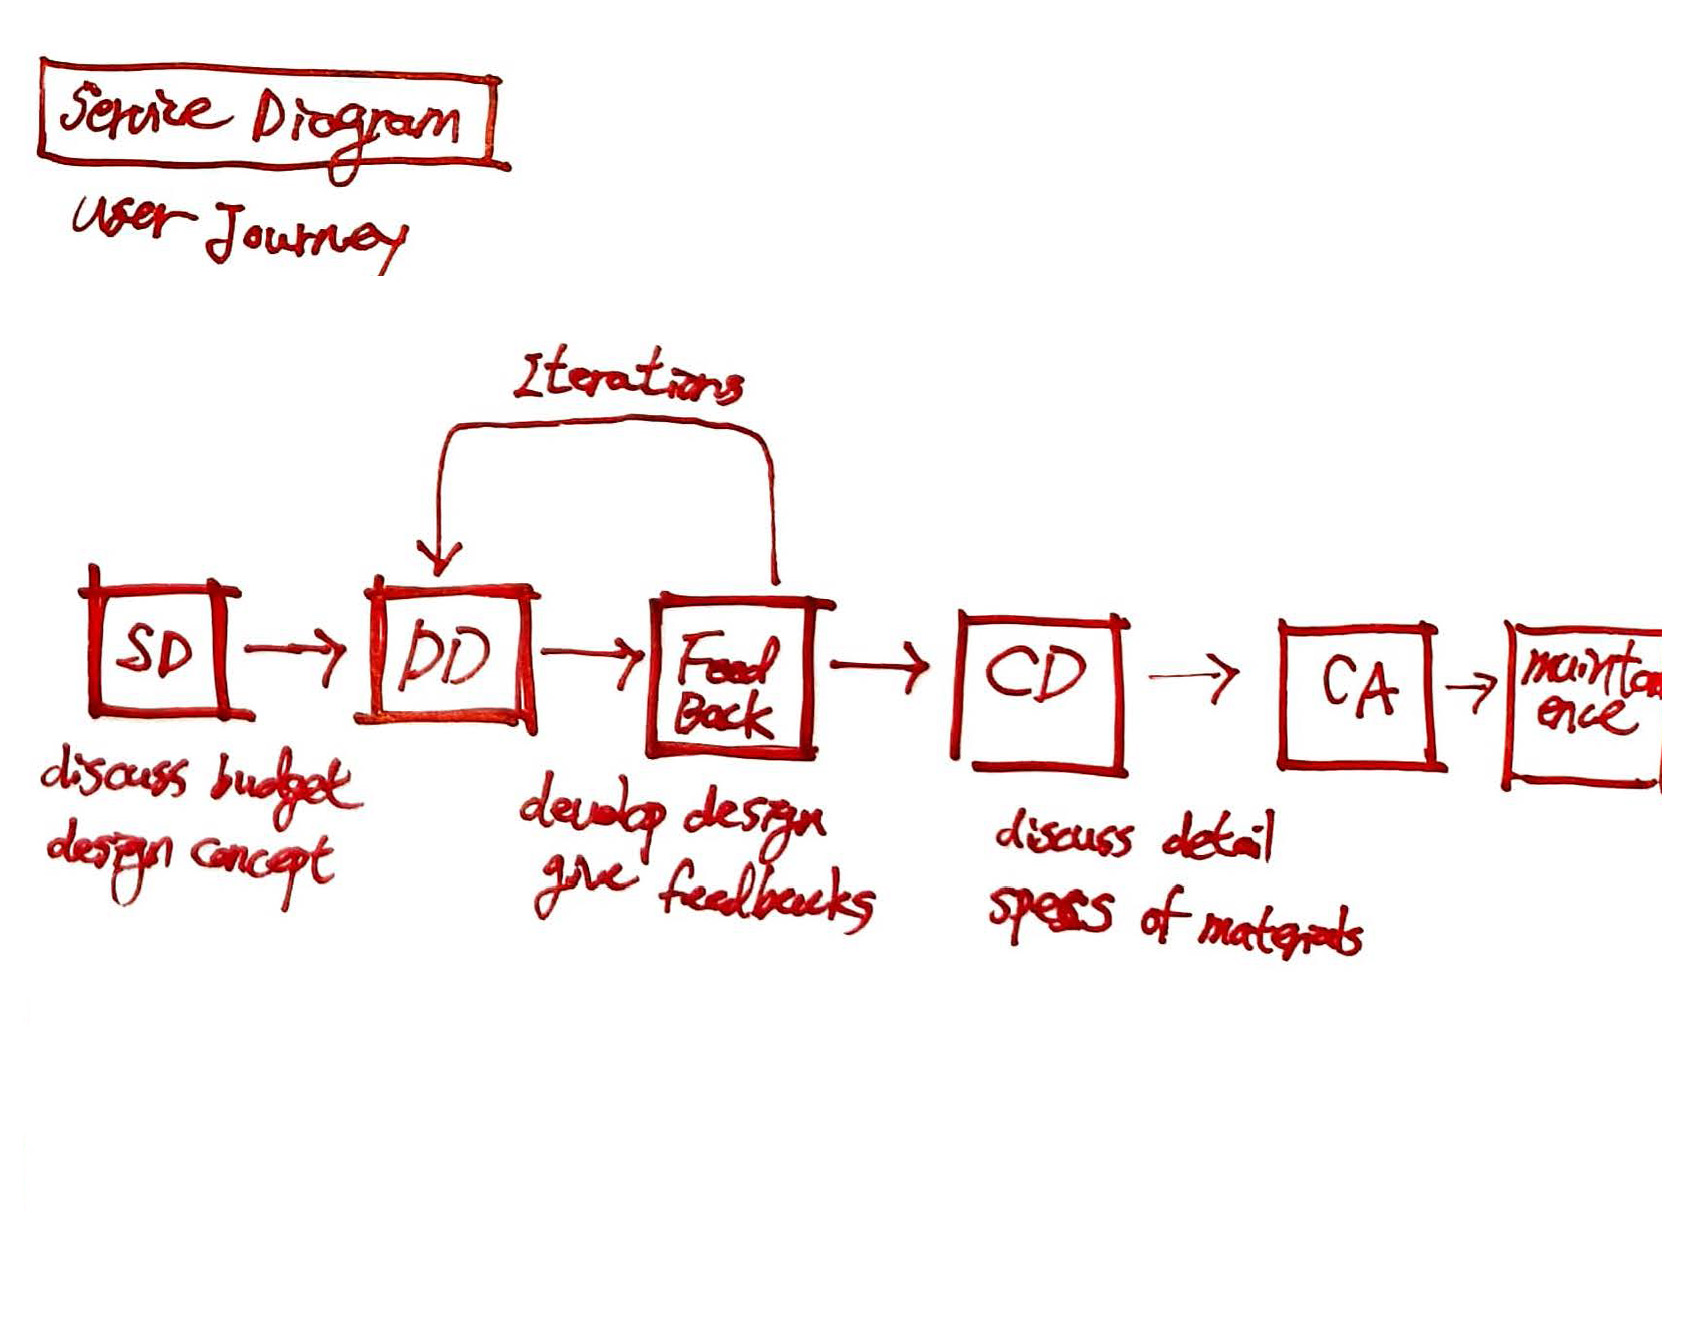 Service Diagram
User Journey
Iterations
SD
DD
Feed
Back
CD
CA
maintan
ence
discuss budget
design concept
develop design
give feedbacks
discuss detail
specs of materials